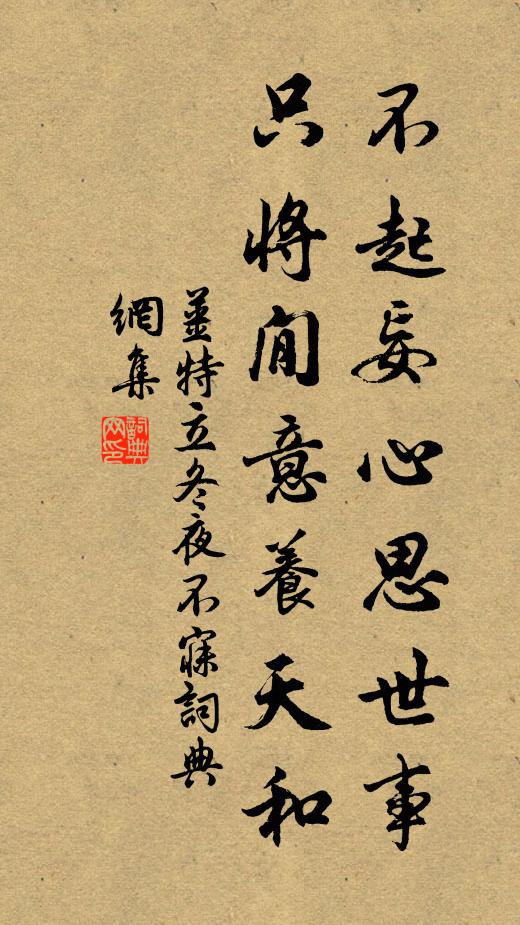 不起妄心思世事
只將閒意養天和
薑特立冬夜不寐詞典
網集
詞典網印